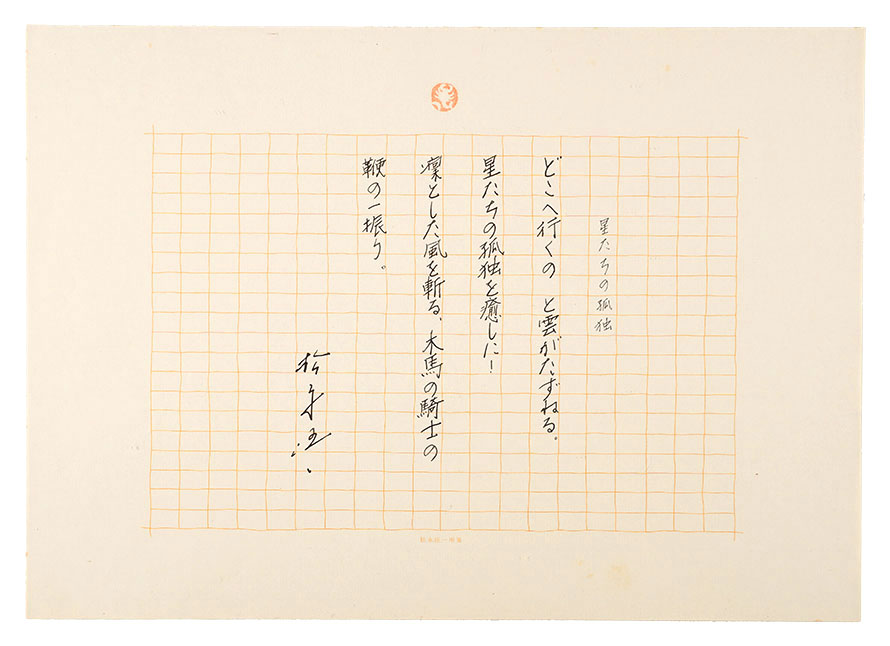 星たちの孤独
どこへ行くの と雲がたずねる。
星たちの孤独を癒しに！
凛とした風を斬る、木馬の騎士の
鞭の一振り。